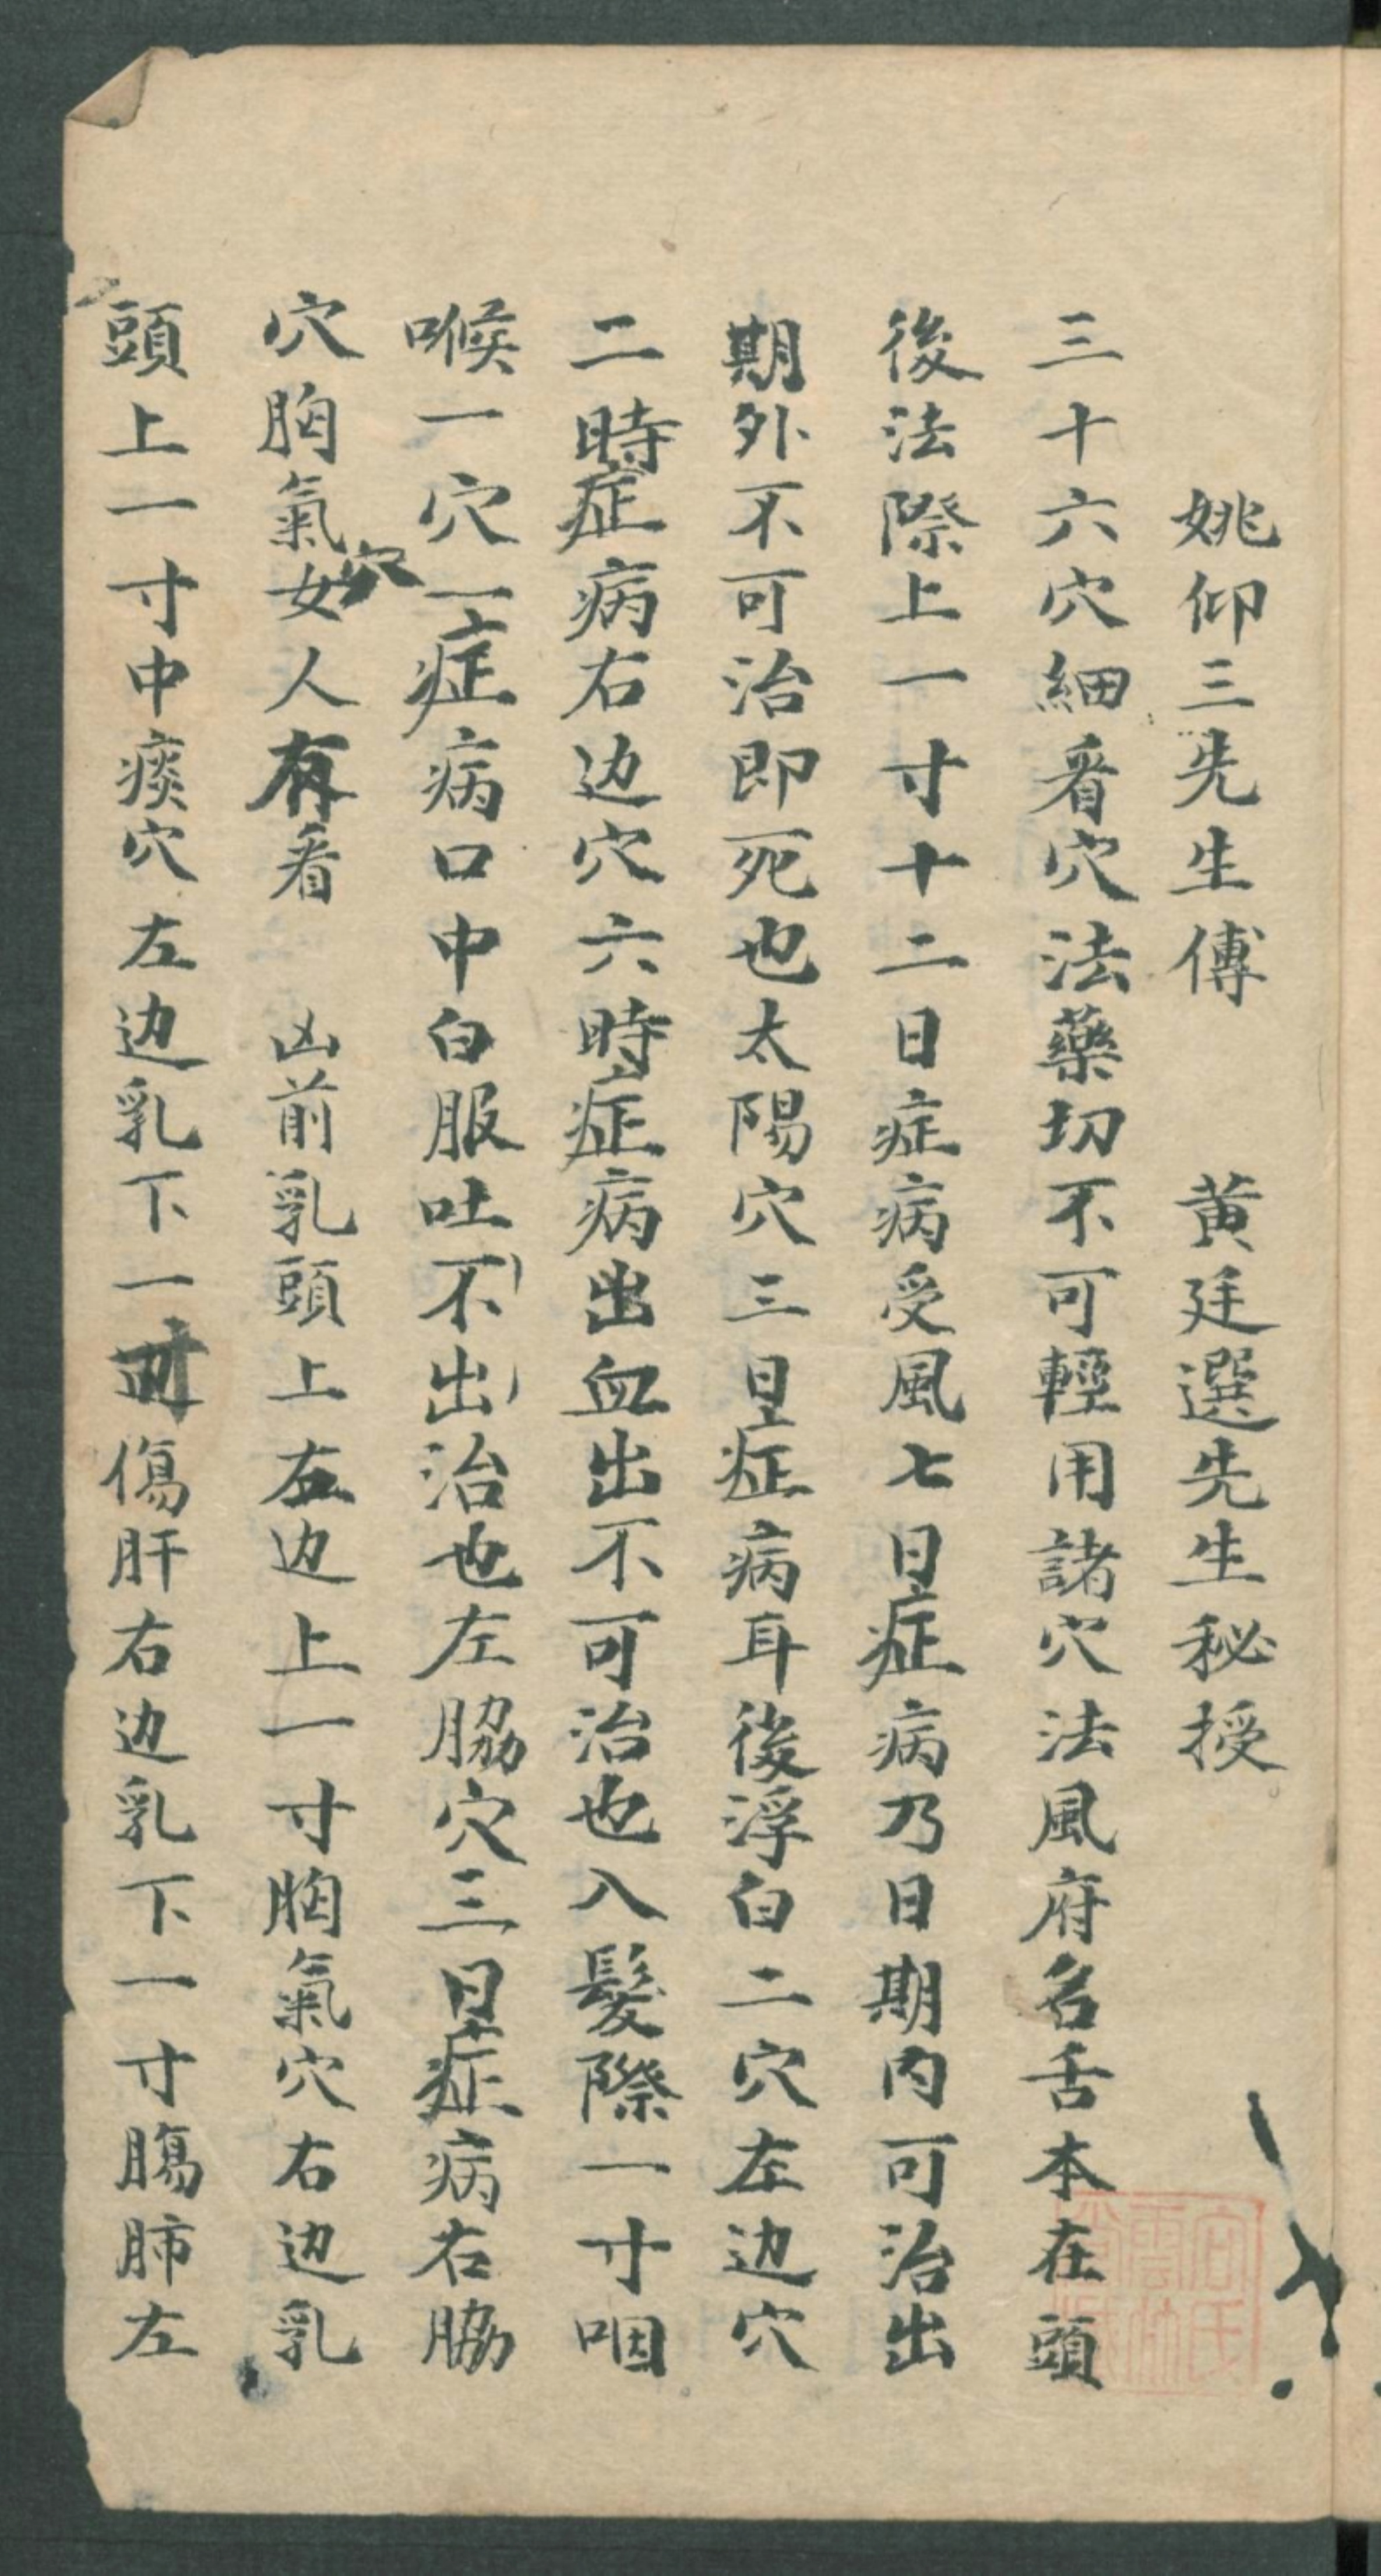 姚仰三先生傅　黄廷選先生秘授
三十六穴細看穴法藥切不可輕用諸穴法風府名舌本在頭
後法際上一寸十二日症病受風七日症病乃日期内可治出
期外不可治即死也太陽穴三日症病耳後浮白二穴左边穴
二時症病右边穴六時症病出血出不可治也入髮際一寸咽
喉一穴一症病口中白服吐不出治也左脇穴三日症病右脇
穴胸氣穴女人有看　凶前乳頭上左边上一寸胸氣穴右边乳
頭上一寸中痰穴左边乳下一寸傷肝右边乳下一寸腸肺左